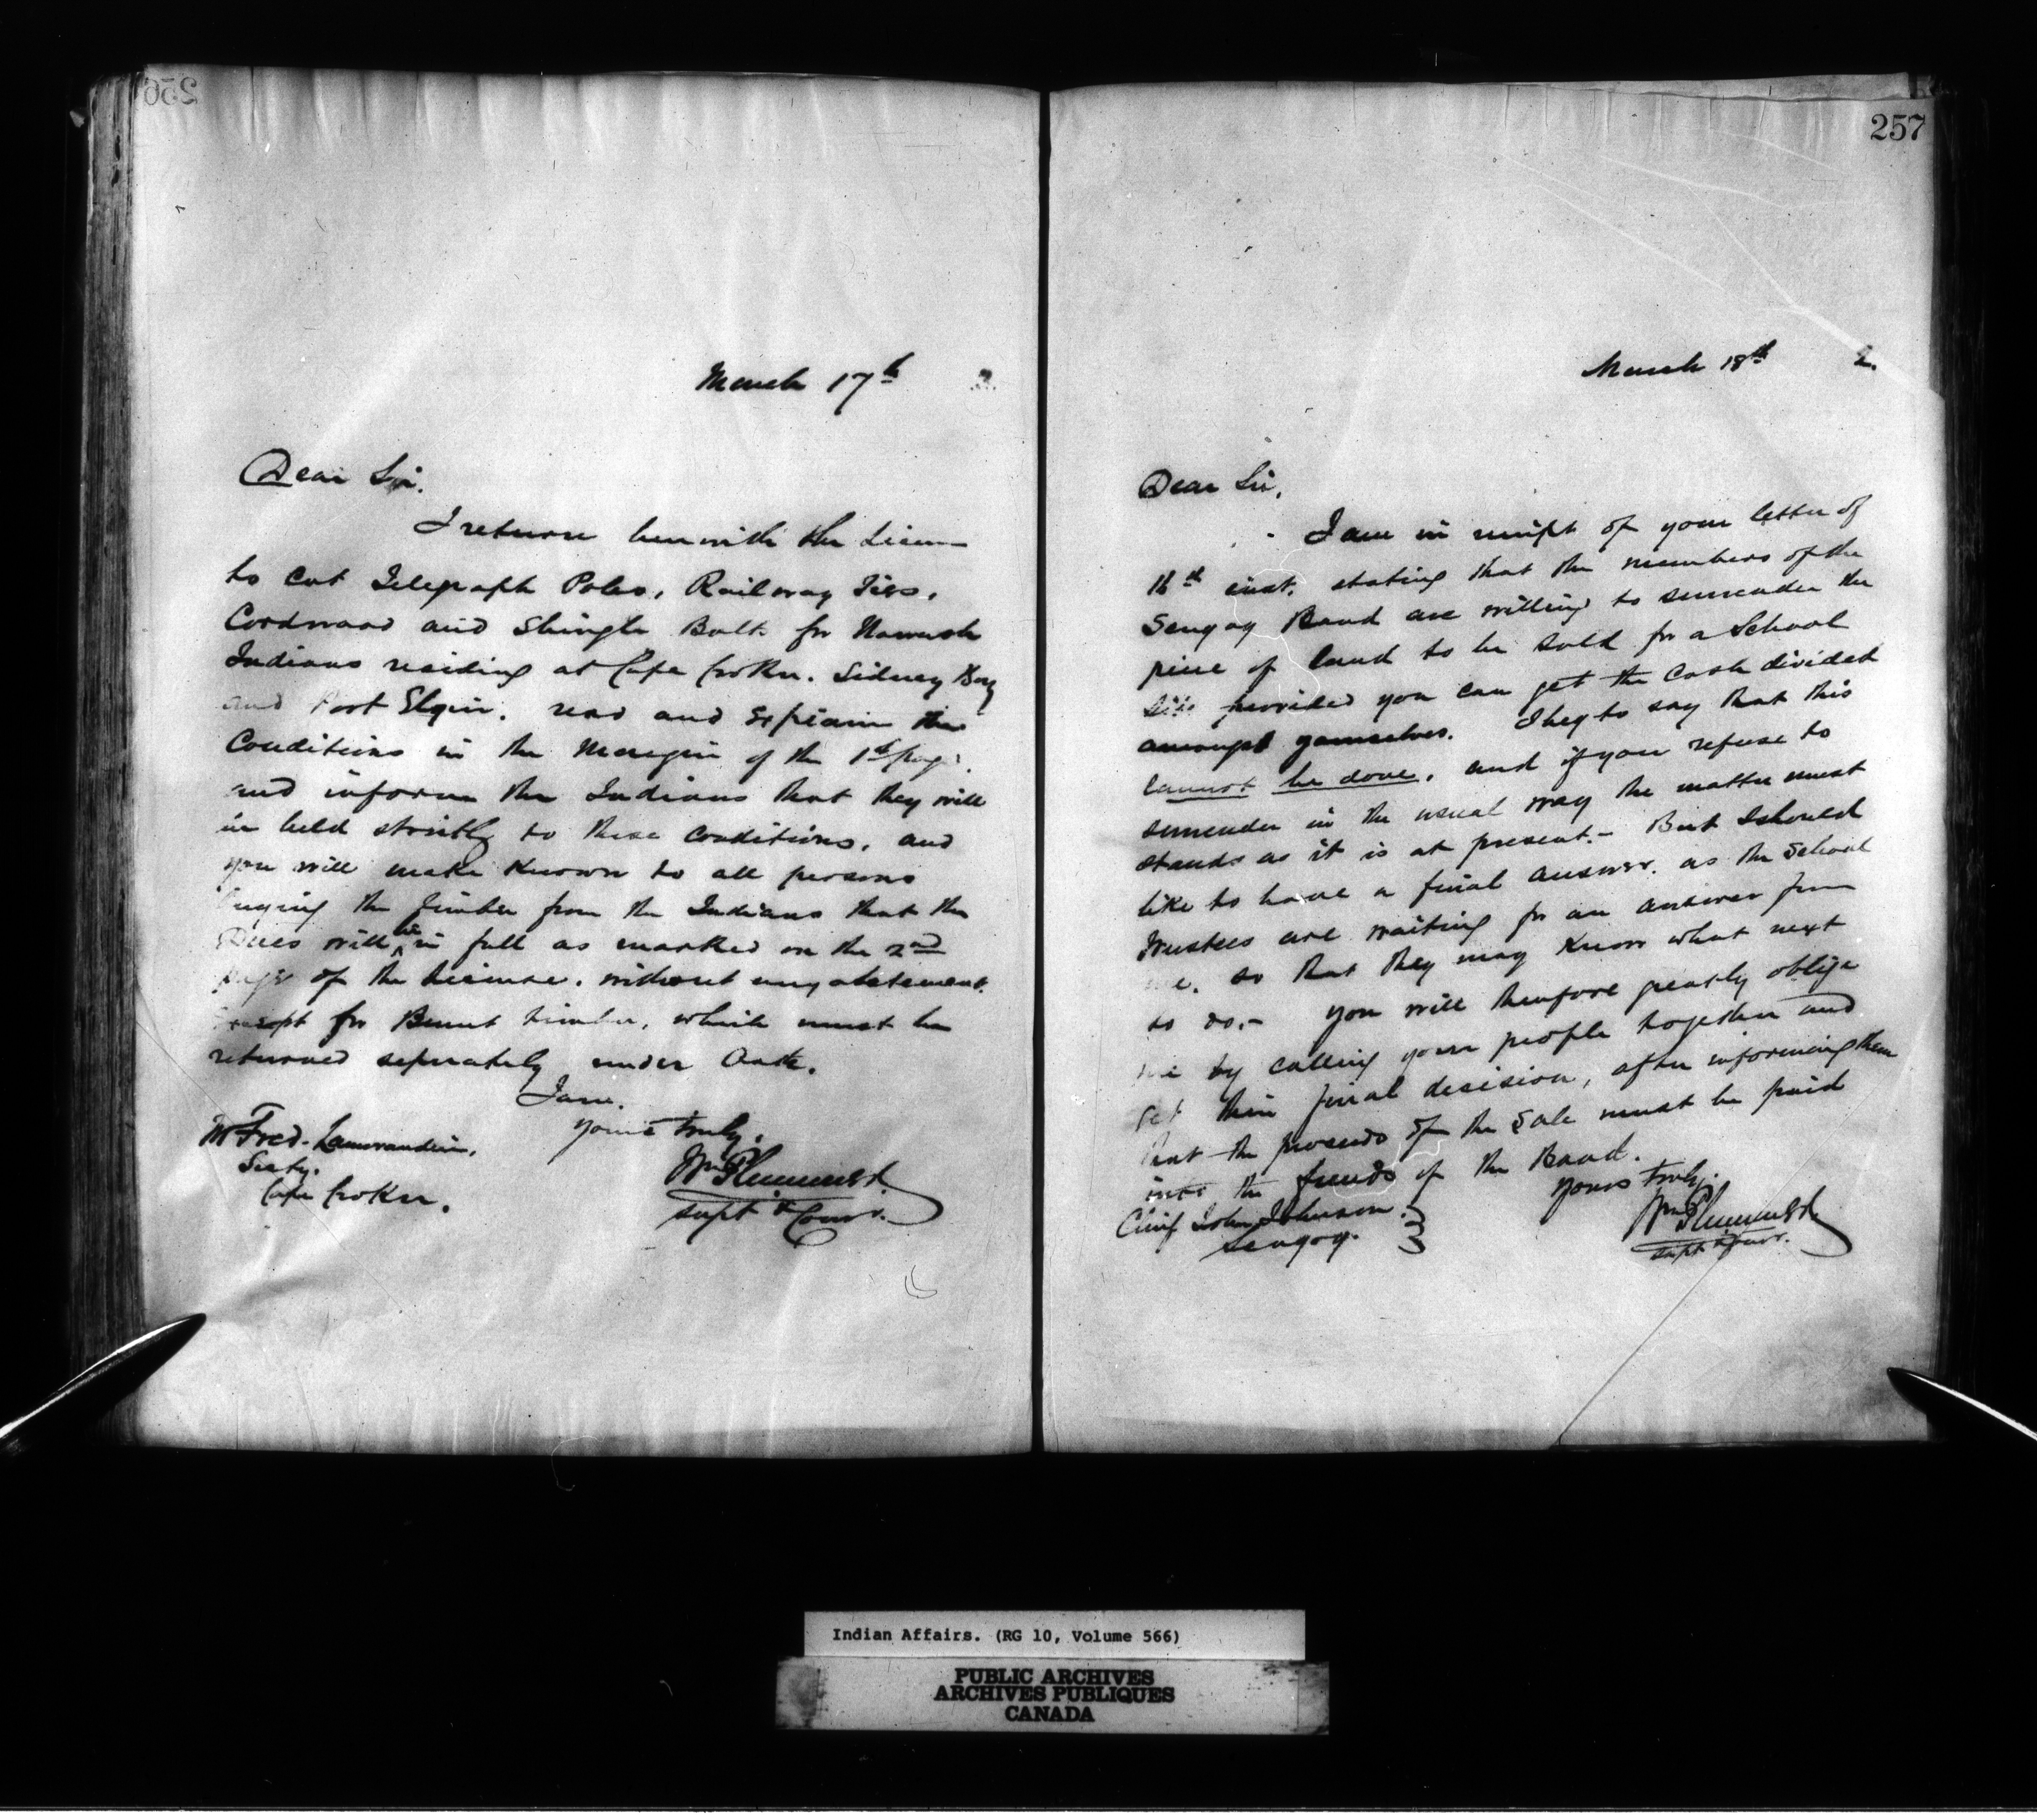 256
March 17th 2.
Dear Sir.
I return herewith the License
to Cut Telegraph Poles, Railway Ties,
Cordwood and Shingle Bolts for Nawash
Indians residing at Cape Croker. Sidney Bay
and Port Elgin. read and Explain the
Conditions in the Margin of the 1st page.
and inform the Indians that they will
be held strictly to these conditions, and
you will make Known to all persons
buying the Timber from the Indians that the
Dues will be in full as marked on the 2nd
page of the License. without any abatement.
Except for Burnt timber, which must be
returned seperately under Oath.
I am.
Yours truly.
Wm Plummer.
Supt & Comr.
Mr Fred. Lamorandiere,
Secty.
Cape Croker.
257
March 18th 2.
Dear Sir,
I am in receipt of your letter of
16th inst. stating that the members of the
Scugog Band are willing to surrender the
piece of land to be sold for a School
Site provided you can get the Cash divided
amongst yourselves. I beg to say that this
cannot be done, and if you refuse to
surrender in the usual way the matter must
stand as it is at present.- But I should
like to have a final answer. as the School
Trustees are waiting for an answer from
me. so that they may Know what next
to do.- You will therefore greatly oblige
me by calling your people together and
get their final decision, after informing them
that the proceeds of the Sale must be paid
into the funds of the Band.
Yours truly.
Wm Plummer.
Supt & Comr.
Chief John Johnson.
Scugog.
Indian Affairs. (RG 10, Volume 566)
PUBLIC ARCHIVES
ARCHIVES PUBLIQUES
CANADA